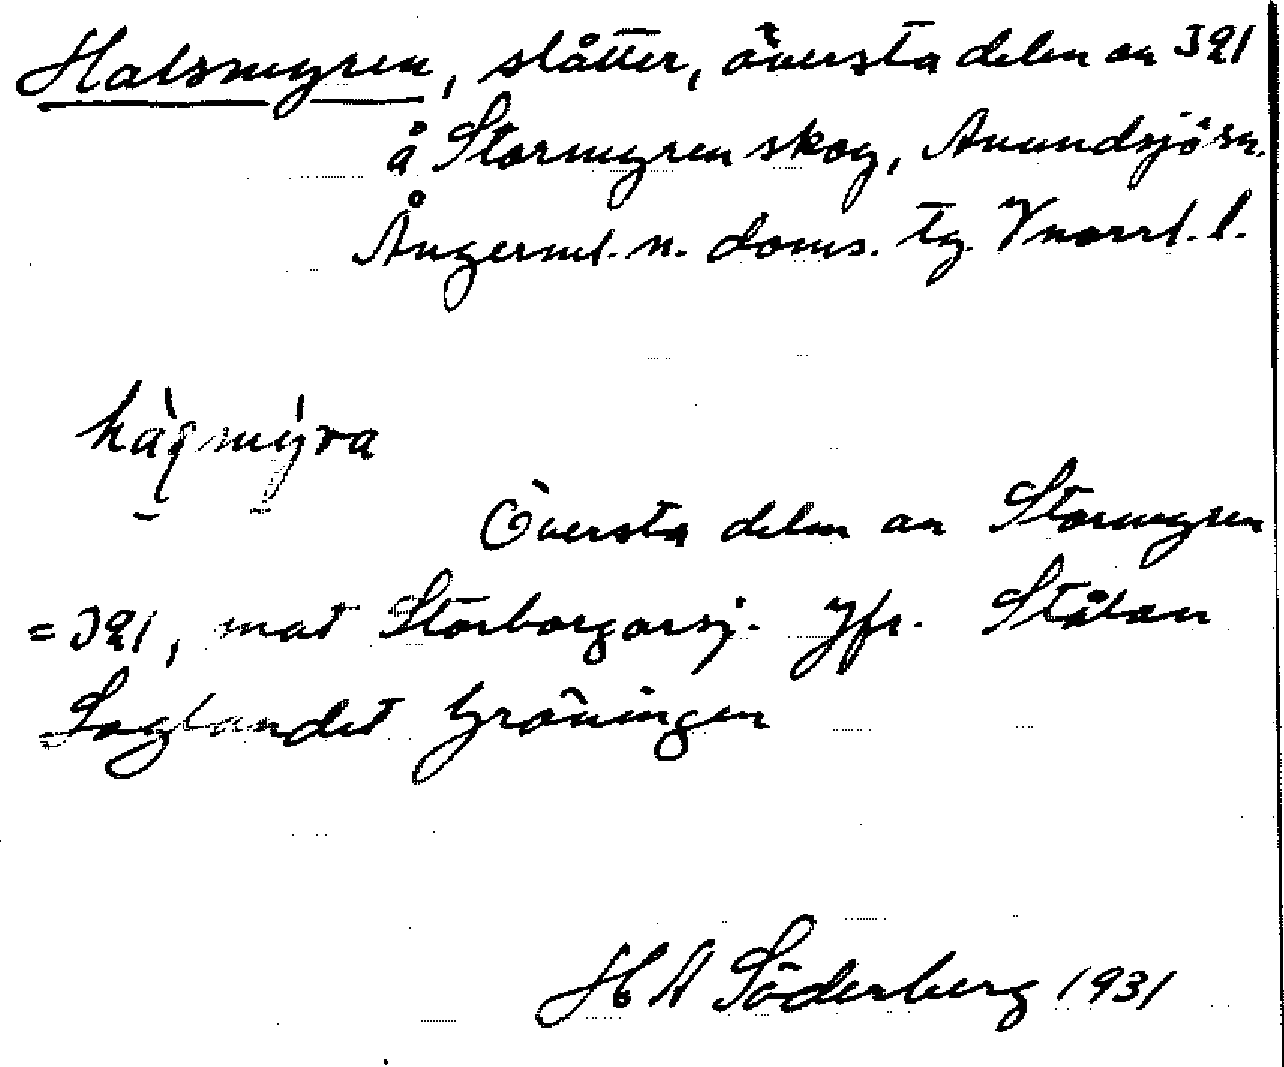 Halsmyren, slåtter, översta delen av 321
å Stormyren skog, Anundsjö sn.
Ångerml. n. doms. tg. Vnorrl. l.
hàqmýra
Översta delen av Stormyren
= 321, mot Storborgarsj. Jfr. Ståtan
Laglandet Gröningen
H A Söderberg 1931